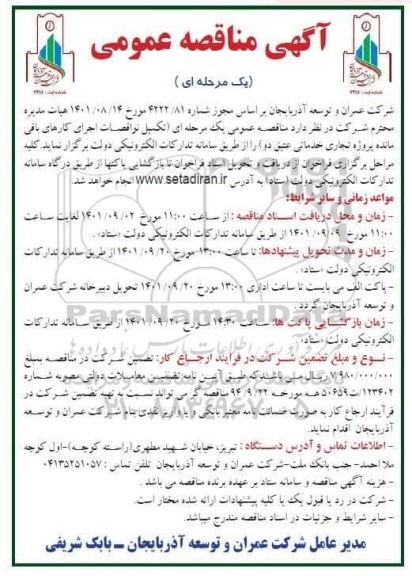 آگهی مناقصه عمومی
(یک مرحله ای)
شرکت عمران و توسعه آذربایجان بر اساس مجوز شماره ۴۲۲۲/۸۱ مورخ ۱۴۰۱/۰۸/۱۴ هیات مدیره
محترم شرکت در نظر دارد مناقصه عمومی یک مرحله ای (تکمیل نواقصات اجرای کارهای باقی
مانده پروژه تجاری خدماتی عتیق دو) را از طریق سامانه تدارکات الکترونیکی دولت برگزار نماید.کلیه
مراحل برگزاری فراخوان از دریافت و تحویل اسناد فراخوان تا بازگشایی پاکتها از طریق درگاه سامانه
تدارکات الکترونیکی دولت (ستاد) به آدرس www.setadiran.ir انجام خواهد شد.
مواعد زمانی و سایر شرایط:
- زمان و محل دریافت اسناد مناقصه : از ساعت ۱۱:۰۰ مورخ ۱۴۰۱/۰۹/۰۲ لغایت ساعت
۱۱:۰۰ مورخ ۱۴۰۱/۰۹/۰۹ از طریق سامانه تدارکات الکترونیکی دولت «ستاد» .
- زمان و مدت تحویل پیشنهادها: تا ساعت ۱۳:۰۰ مورخ ۱۴۰۱/۰۹/۲۰ از طریق سامانه تدارکات
الکترونیکی دولت «ستاد»
- پاکت الف می بایست تا ساعت اداری ۱۳:۰۰ مورخ ۱۴۰۱/۰۹/۲۰ تحویل دبیرخانه شرکت عمران
و توسعه آذربایجان گردد .
- زمان بازگشایی پاکت ها: ساعت ۱۴:۳۰ مورخ ۱۴۰۱/۰۹/۲۰ از طریق سامانه تدارکات
الکترونیکی دولت «ستاد»
- نوع و مبلغ تضمین شرکت در فرآیند ارجاع کار: تضمین شرکت در مناقصه بمبلغ
۷/۹۸۰/۰۰۰/۰۰۰ ریال می باشد که طبق آئین نامه تضمین معاملات دولتی مصوبه شماره
۱۲۳۴۰۲/ت۵۰۶۵۹هـ مورخه ۹۴/۰۹/۲۲ مناقصه گر می تواند نسبت به تهیه تضمین شرکت در
فرآیند ارجاع کار به صورت ضمانت نامه معتبر بانکی و یا واریز نقدی بنام شرکت عمران و توسعه
آذربایجان اقدام نماید.
- اطلاعات تماس و آدرس دستگاه : تبریز، خیابان شهید مطهری(راسته کوچه)-اول کوچه
ملا احمد- جنب بانک ملت-شرکت عمران و توسعه آذربایجان تلفن تماس : ۰۴۱۳۵۲۵۱۰۵۷
- هزینه آگهی مناقصه و سامانه ستاد بر عهده برنده مناقصه می باشد .
- شرکت در رد یا قبول یک یا کلیه پیشنهادات ارائه شده مختار است.
- سایر شرایط و جزئیات در اسناد مناقصه مندرج میباشد.
مدیر عامل شرکت عمران و توسعه آذربایجان ــ بابک شریفی